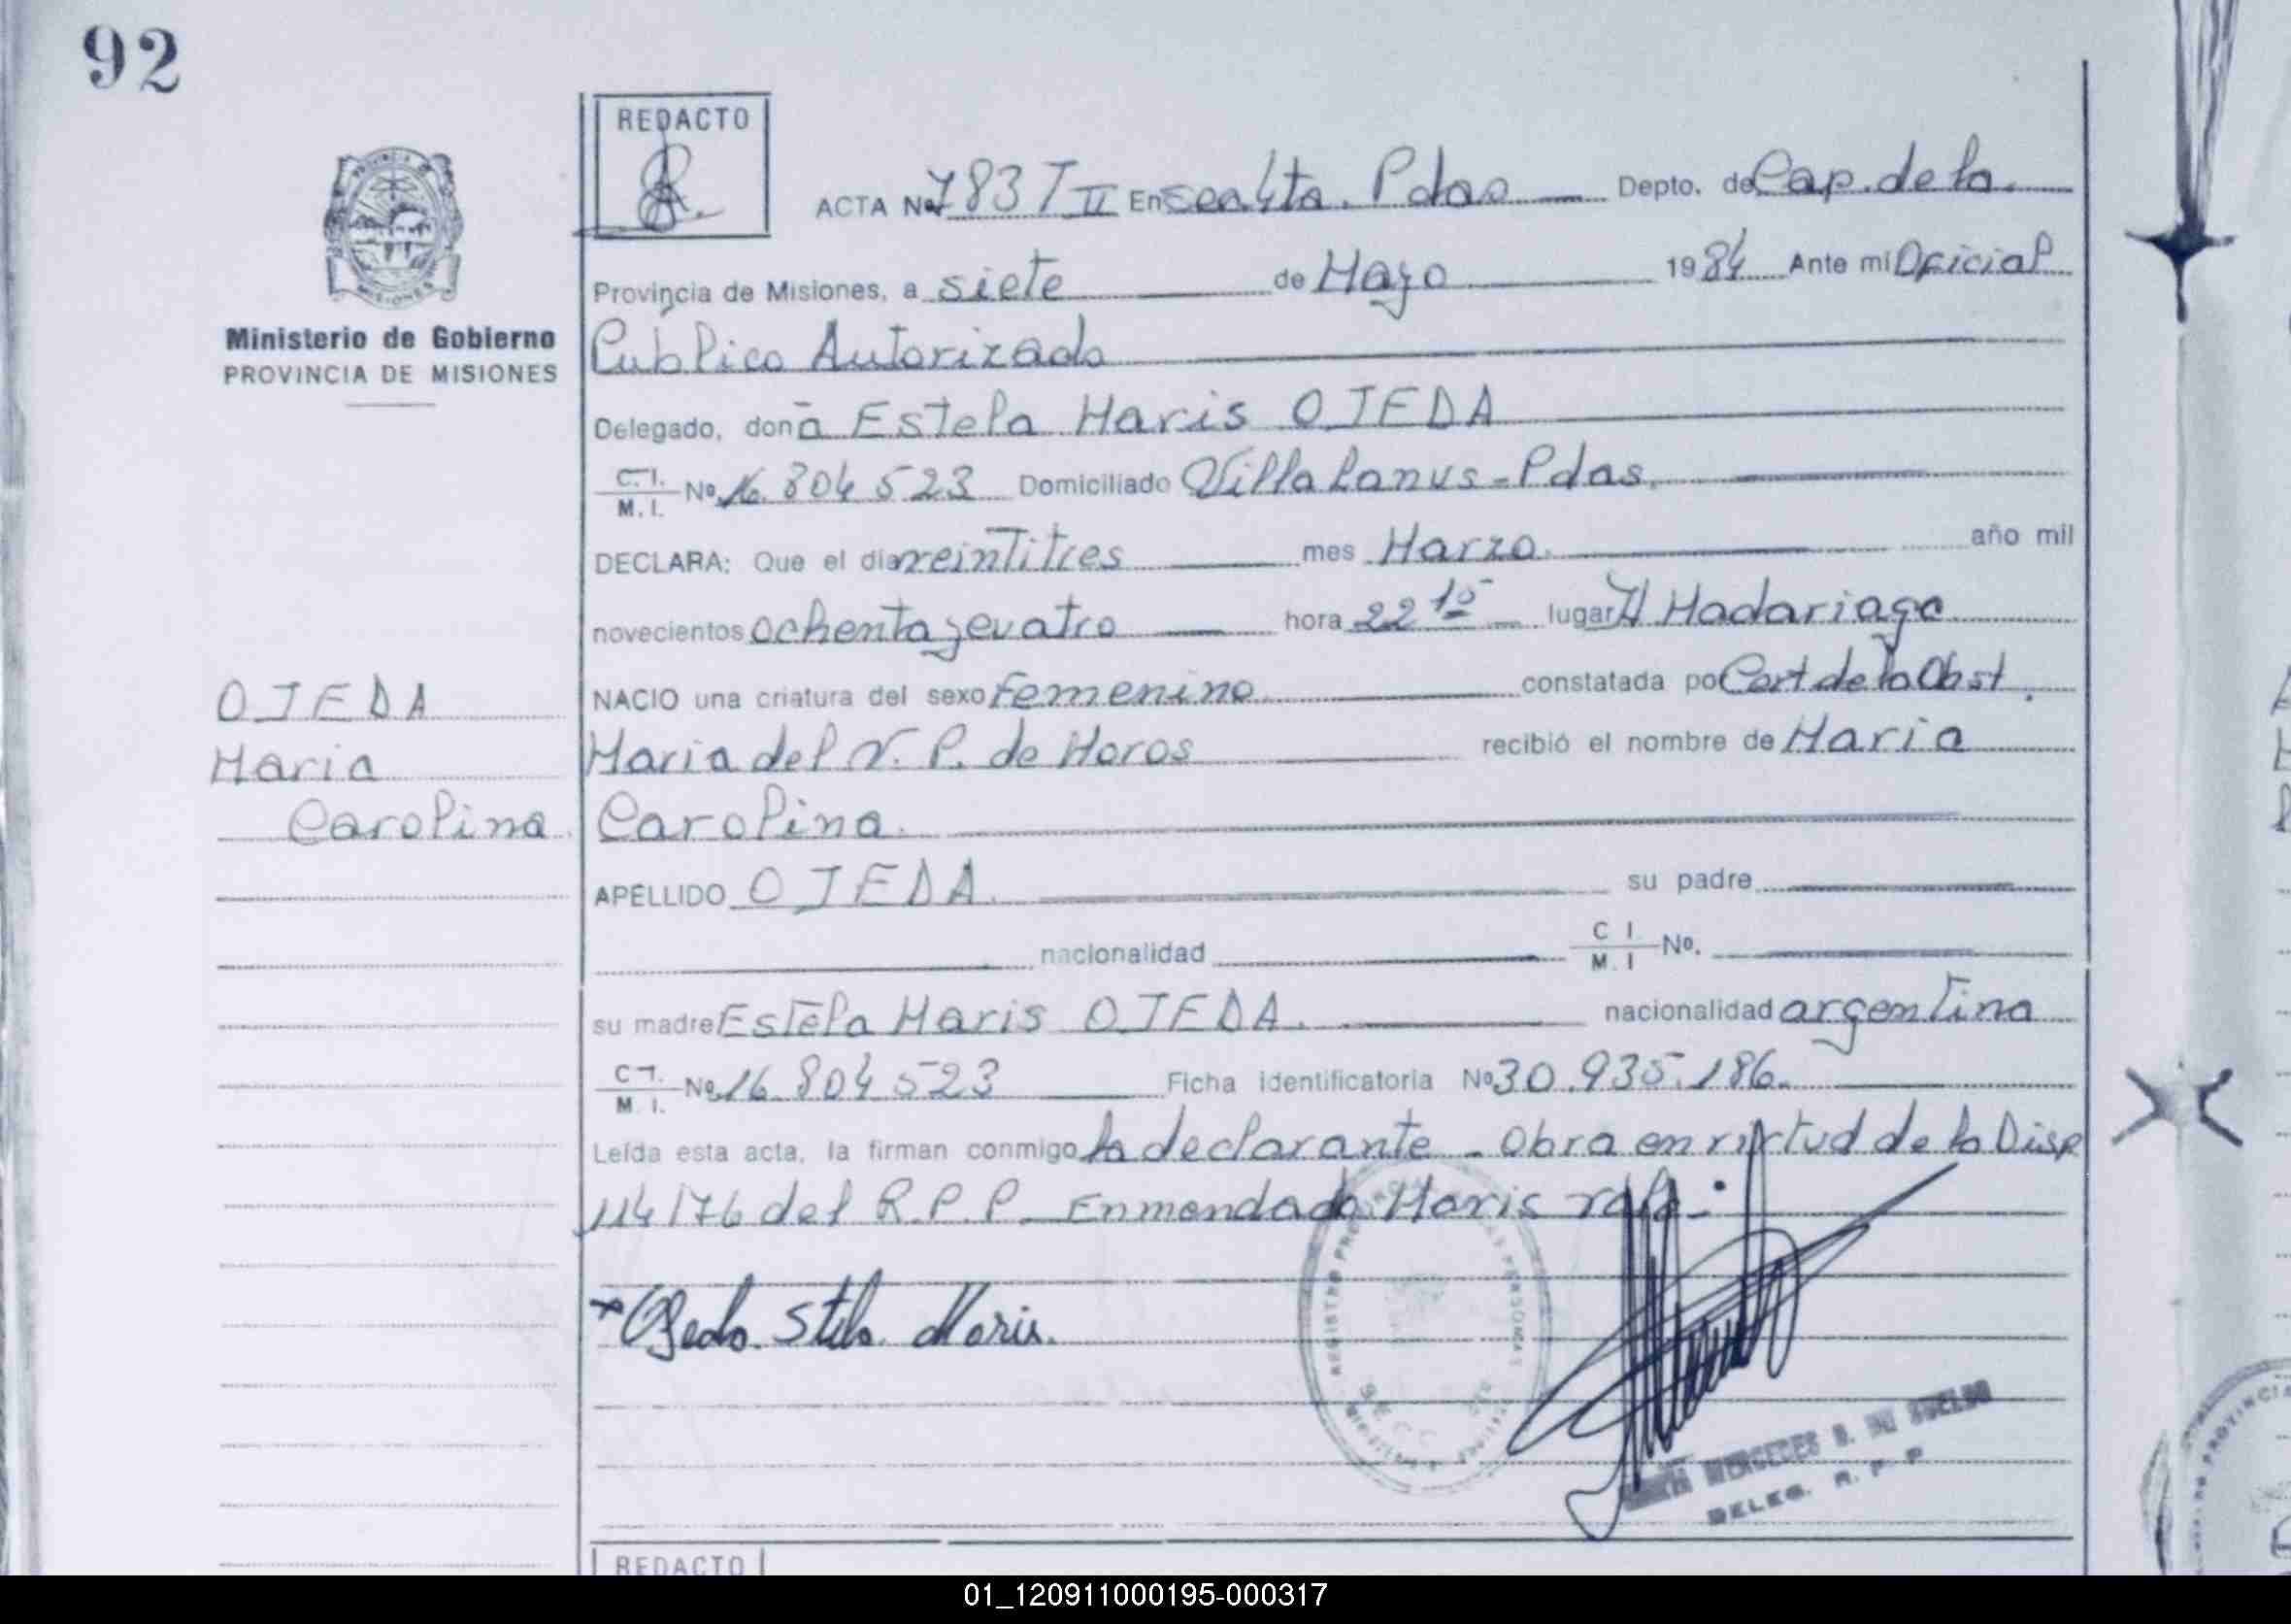 92
REDACTO
PROVINCIA DE
MISIONES
ACTA Nº 783 T II En secc 4ta. Pdas Depto. de Cap. de la.
Ministerio de Gobierno
PROVINCIA DE MISIONES
Provincia de Misiones, a siete de Mayo 1984 Ante mi Oficial
Publico Autorizado
Delegado, doña Estela Maris OJEDA
C.I. M.I. Nº 16.804 523 Domiciliado Villa Lanus - Pdas.
DECLARA: Que el dia veintitres mes Marzo. año mil
novecientos ochenta y cuatro hora 22 15 lugar H Madariaga
NACIO una criatura del sexo femenino constatada po Cert de la Obst.
Maria del V. P. de Moros recibió el nombre de Maria
Carolina.
OJEDA
Maria
Carolina.
APELLIDO OJEDA. su padre
nacionalidad C I M.I Nº.
su madre Estela Maris OJEDA. nacionalidad argentina
C I. M I. Nº 16.804 523 Ficha identificatoria Nº 30.935.186.
Leída esta acta, la firman conmigo la declarante - Obra en virtud de la Disp
114/76 del R.P.P. Enmendado: Maris vale.-
Ojeda Stela Maris.
REGISTRO PROVINCIAL PERSONAS
MERCEDES
DELEG. R. P. P
REDACTO
01_120911000195-000317